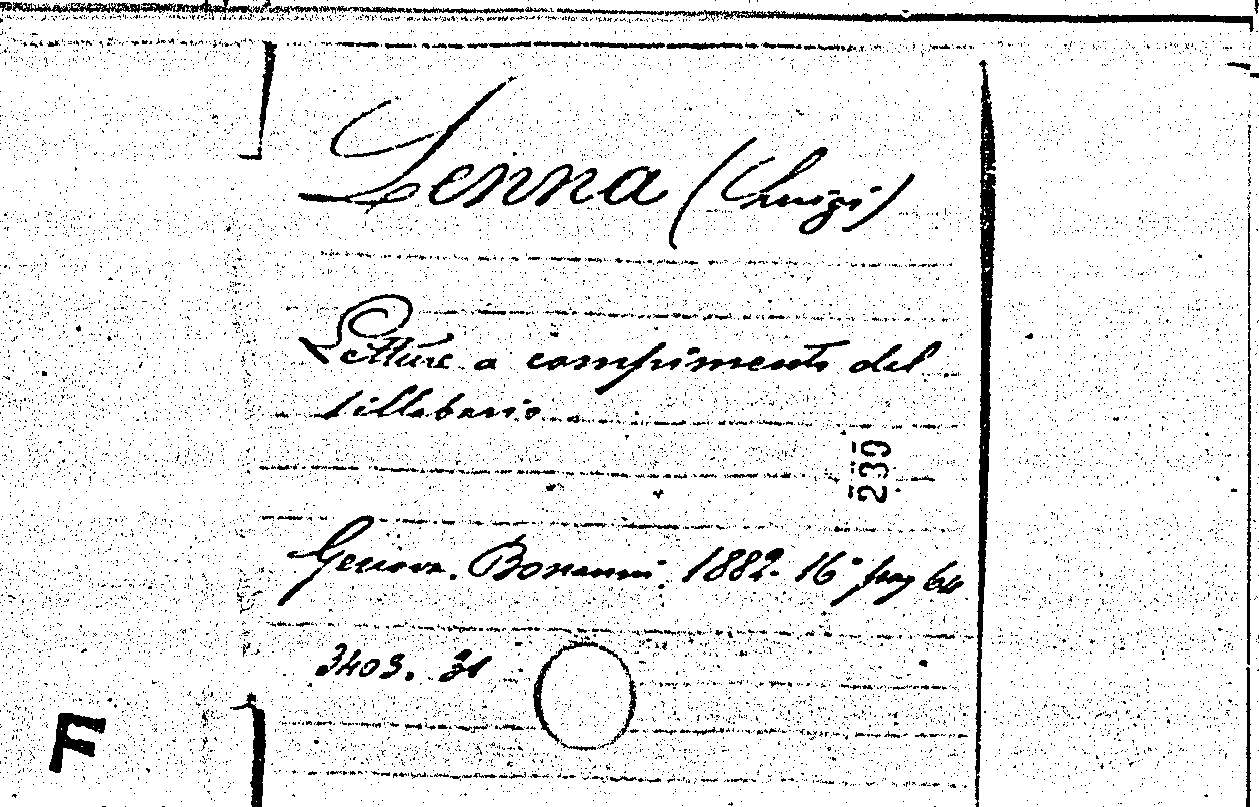 Lenna (Luigi)
Letture a compimento del
sillabario.
230
Genova. Bonanni. 1882. 16° pag 64
3403. 31
F